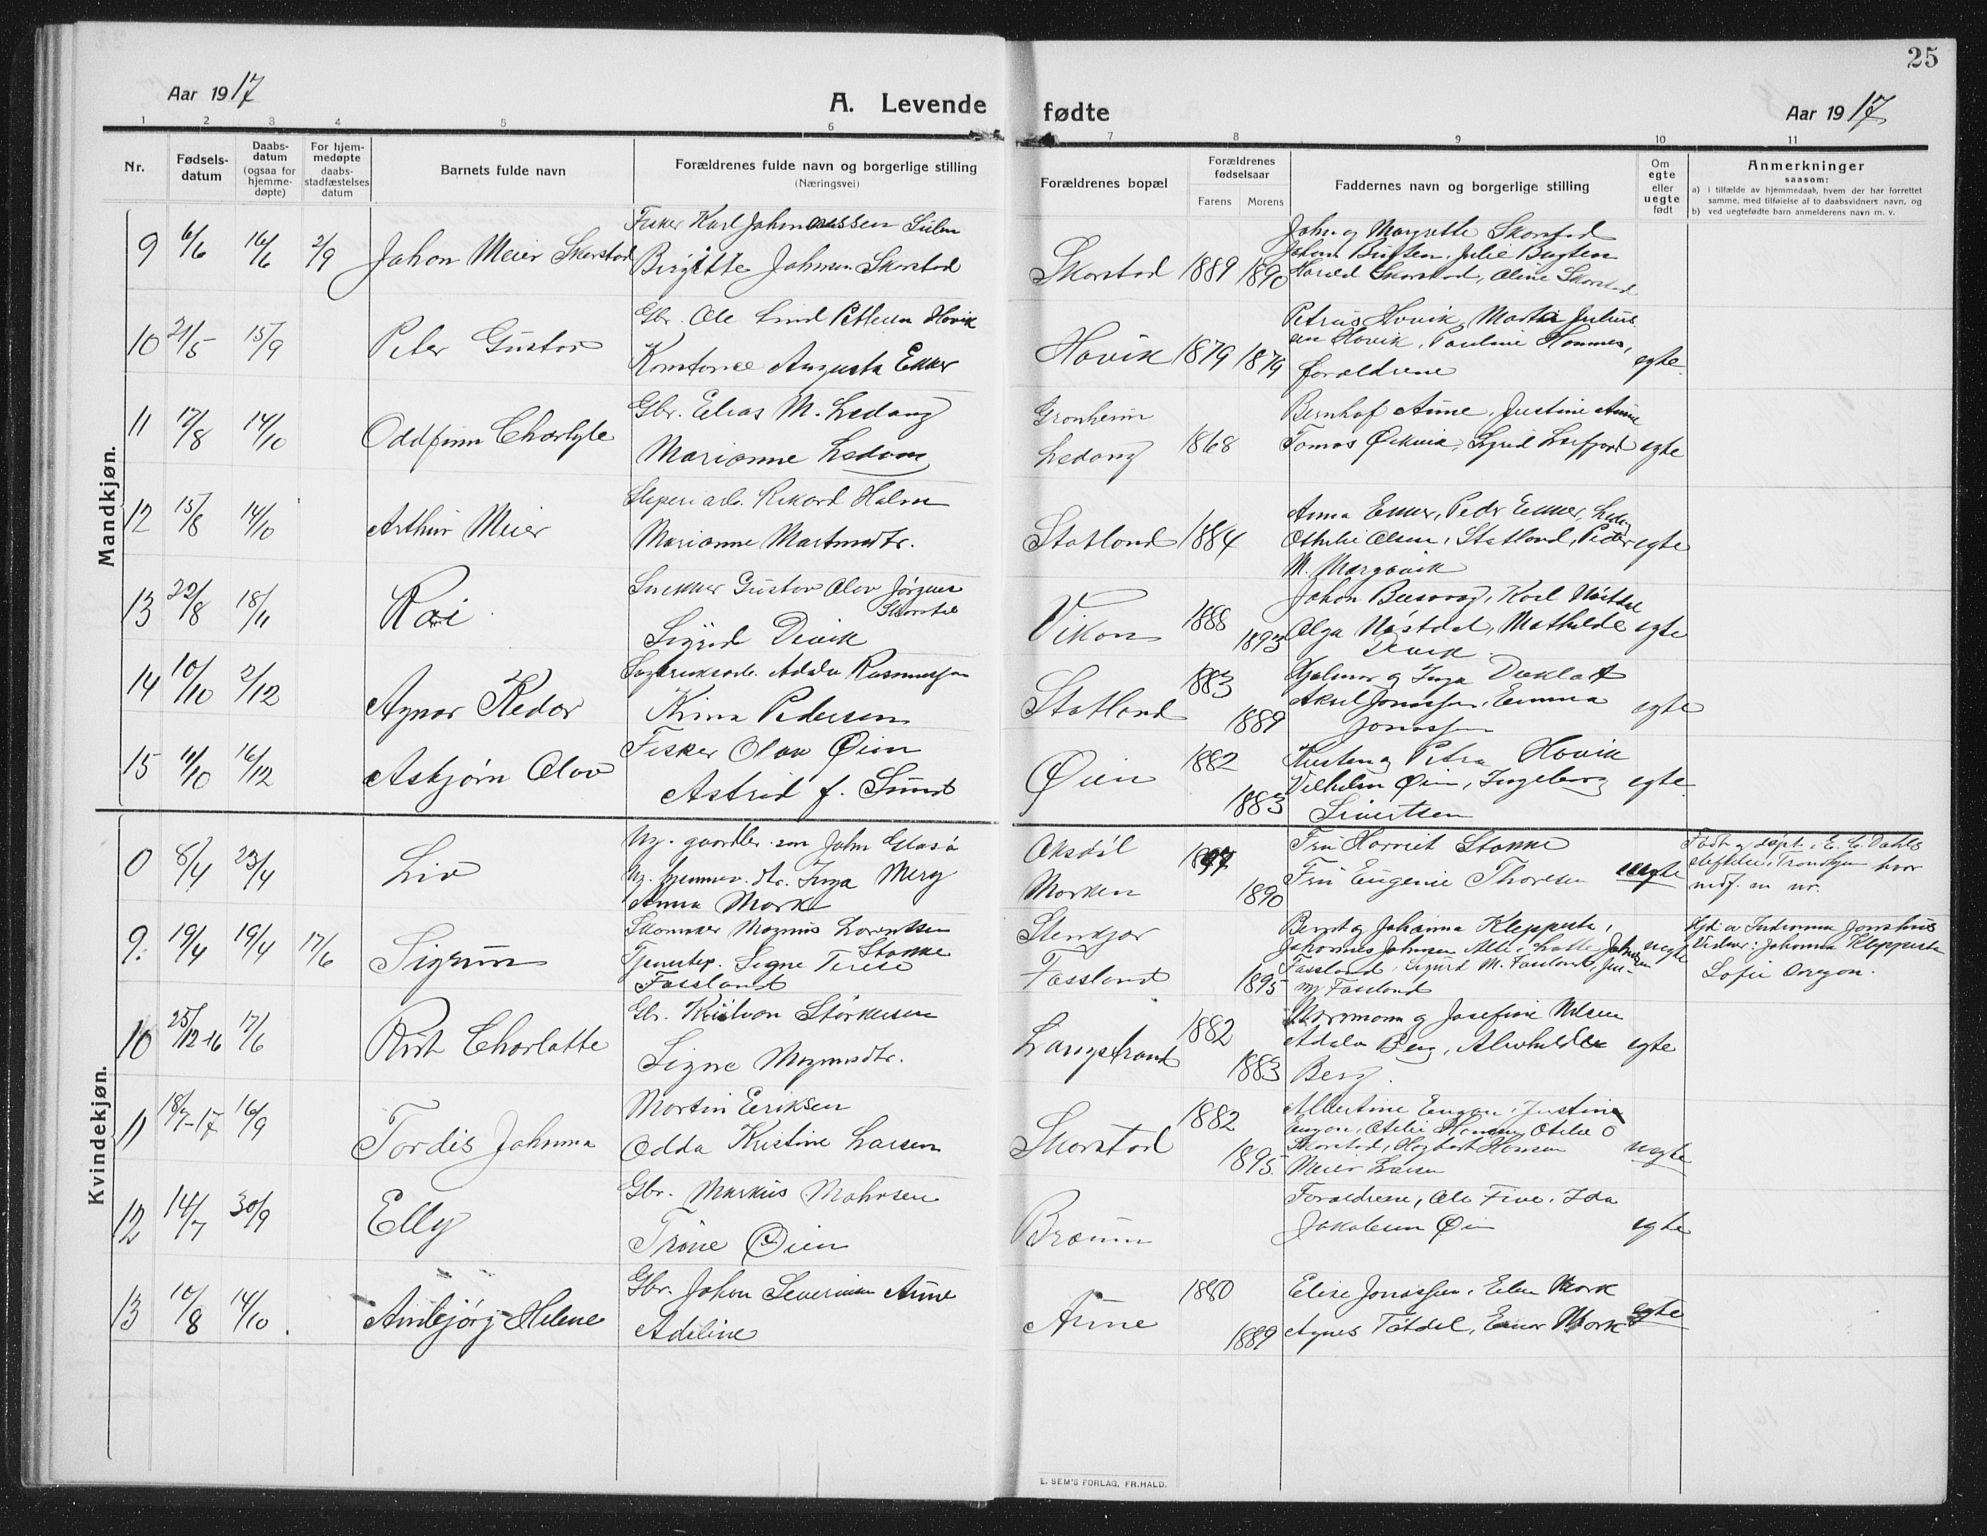 25
Aar 1917
A. Levende fødte
Aar 1917
1 2 3 4 5 6 7 8 9 10 11
Nr.
Fødsels-
datum
Daabs-
datum
(ogsaa for
hjemme-
døpte)
For hjem-
medøpte
daabs-
stadfæstelses
datum
Barnets fulde navn
Forældrenes fulde navn og borgerlige stilling
(Næringsvei)
Forældrenes bopæl
Forældrenes
fødselsaar
Farens Morens
Faddernes navn og borgerlige stilling
Om
egte
eller
uegte
født
Anmerkninger
saasom:
a) i tilfælde av hjemmedaab, hvem der har forrettet
samme, med tilføielse af to daabsvidners navn, og
b) ved uegtefødte barn anmelderens navn m. v.
Mandkjøn.
9 6/6 16/6 2/9 Johan Meier Skorstad
Fisker Karl Johannessen
Birgitte Johnsen Skorstad
Skorstad 1889 1890
John og Margrethe Skorstad
Harald Skorstad, Oline Skorstad
10 21/5 15/9 Peter Gustav
Gbr. Ole Lind Pettersen Hovik
Konstance Augusta Ekker
Hovik 1879 1879
Petrus Hovik, Martin Julius
sen Hovik, Pauline Hommes,
forældrene
egte
11 17/8 14/10 Oddfinn Charlyle
Gbr. Edias M. Ledang
Marianne Ledang
Gronheim
Ledang 1868
Bernhof Aune, Justine Aune
Tomas Ørkvik, egte
12 15/8 14/10 Arthur Meier
Rikard Holm
Marianne Martinsdtr.
Statland 1884
Anna Ekker, Peder Ekker,
Othelie Olsen, Statland, Peder egte
M. Margavik
13 22/8 18/11 Kai
Snekker Gustav Olav Jørgens
Skorstad
Sigrid Devik
Vikan 1888 1893
Olga Nøstdal, Mathilde egte
Devik
14 10/10 2/12 Agnar Kedar
Adolv Rasmussen
Krina Pedersen
Statland 1883 1889
Hjalmar og Inga
Aksel Jonassen, Emma egte
Jonassen
15 11/10 16/12 Asbjørn Olav
Fisker Olav Øien
Astrid f. Sund
Øien 1882 1883
Kristen og Petra Hovik
Vilhelm Øien, Ingeborg egte
Sivertsen
Kvindekjøn.
0 8/4 23/4 Liv
Ug. gaardbr. søn John Glasø
Ug. hjemmev. dtr. Inga Mery
Anna Mork
Oksdøl
Morken 1897 1890
Fru Harriet Stokke
Fru Eugenie Thoresen uegte
Født og døpt i E. C. Dahls
stiftelse, Trondhjem hvor
indf. m nr.
9. 19/4 19/4 17/6 Sigrun
Skomaker Magnus Lorentsen
Stokke
Tjenestep. Signe Terese
Fossland
Stenkjær
Fossland 1895
Bernt og Johanna Kleppesta,
Fossland, Sigurd M. Fossland, Jen-
ny Fossland
uegte
Hjd. av Jordmor Jonshus
Vidner: Johanna Kleppesta
Lofie
10 25/12-16 17/6 Rut Charlotte
Gbr. Kristian Størkersen
Signe Magnusdtr.
Langstrand 1882 1883
og Josefine Nilsen
Adolv Berg, Alvhilde egte
Berg.
11 18/7-17 16/9 Tordis Johanna
Martin Eriksen
Odda Kristine Larsen
Skorstad 1882 1895
Albertine Engan, Justine
Engan, Otelie Hansen, Otelie O
Skorstad, Hagbart Hansen
Meier Larsen
uegte
12 14/7 30/9 Elly
Gbr. Markus Mahrsen
Trine Øien
Braum
Foraldrene, Ole Five, Ida
Jakobsen Øien egte
13 10/8 14/10 Ambjørg Helene
Gbr. Johan Severinsen Aune
Adeline
Aune 1880 1889
Elise Jonassen, Elen Mork
Agnes Tøtdal, Einar Mork egte
E. SEM'S FORLAG, FR.HALD.